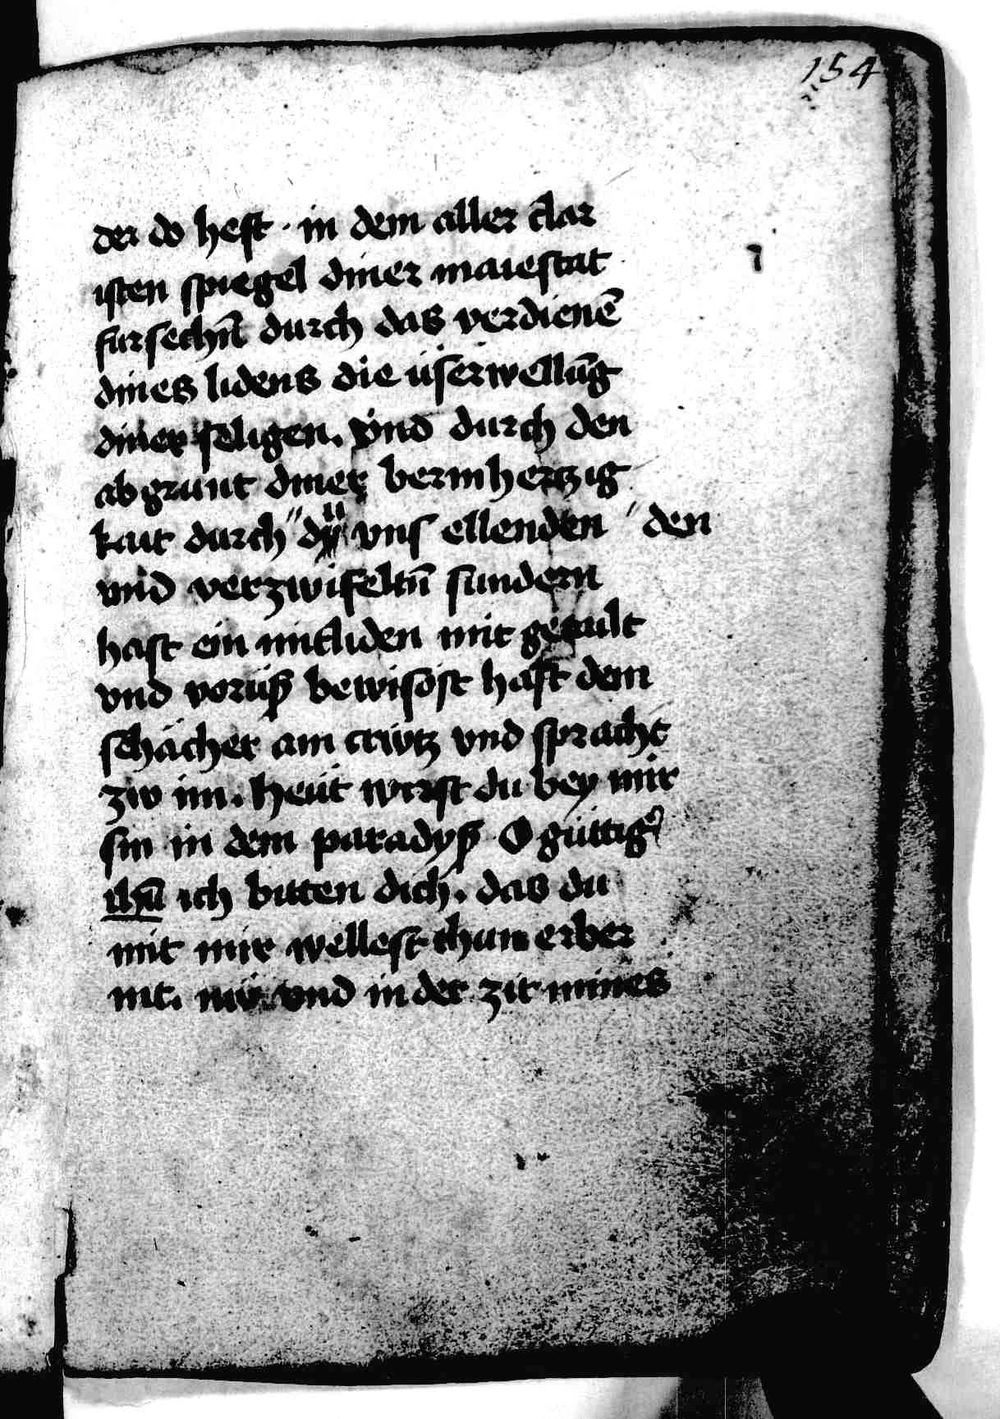 154
der do hest · in dem aller clar
isten spiegel diner maiestat
fursechñ durch das verdienē
dines lidens die üserwellūg
diner seligen. vnd durch den
ab grunt diner bermhertzig
kait durch vns ellenden den
vnd verzwifeltñ sundern
hast ein mitliden mit gehalt
vnd vorüß bewisöst hast dem
schächer am crütz vnd spracht
zw im. heüt wirst du bey mir
sin in dem paradyß O güttigͤ
ihū ich bitten dich. das du
mit mir wellest thun erber
mt. mir vnd in der zit mines